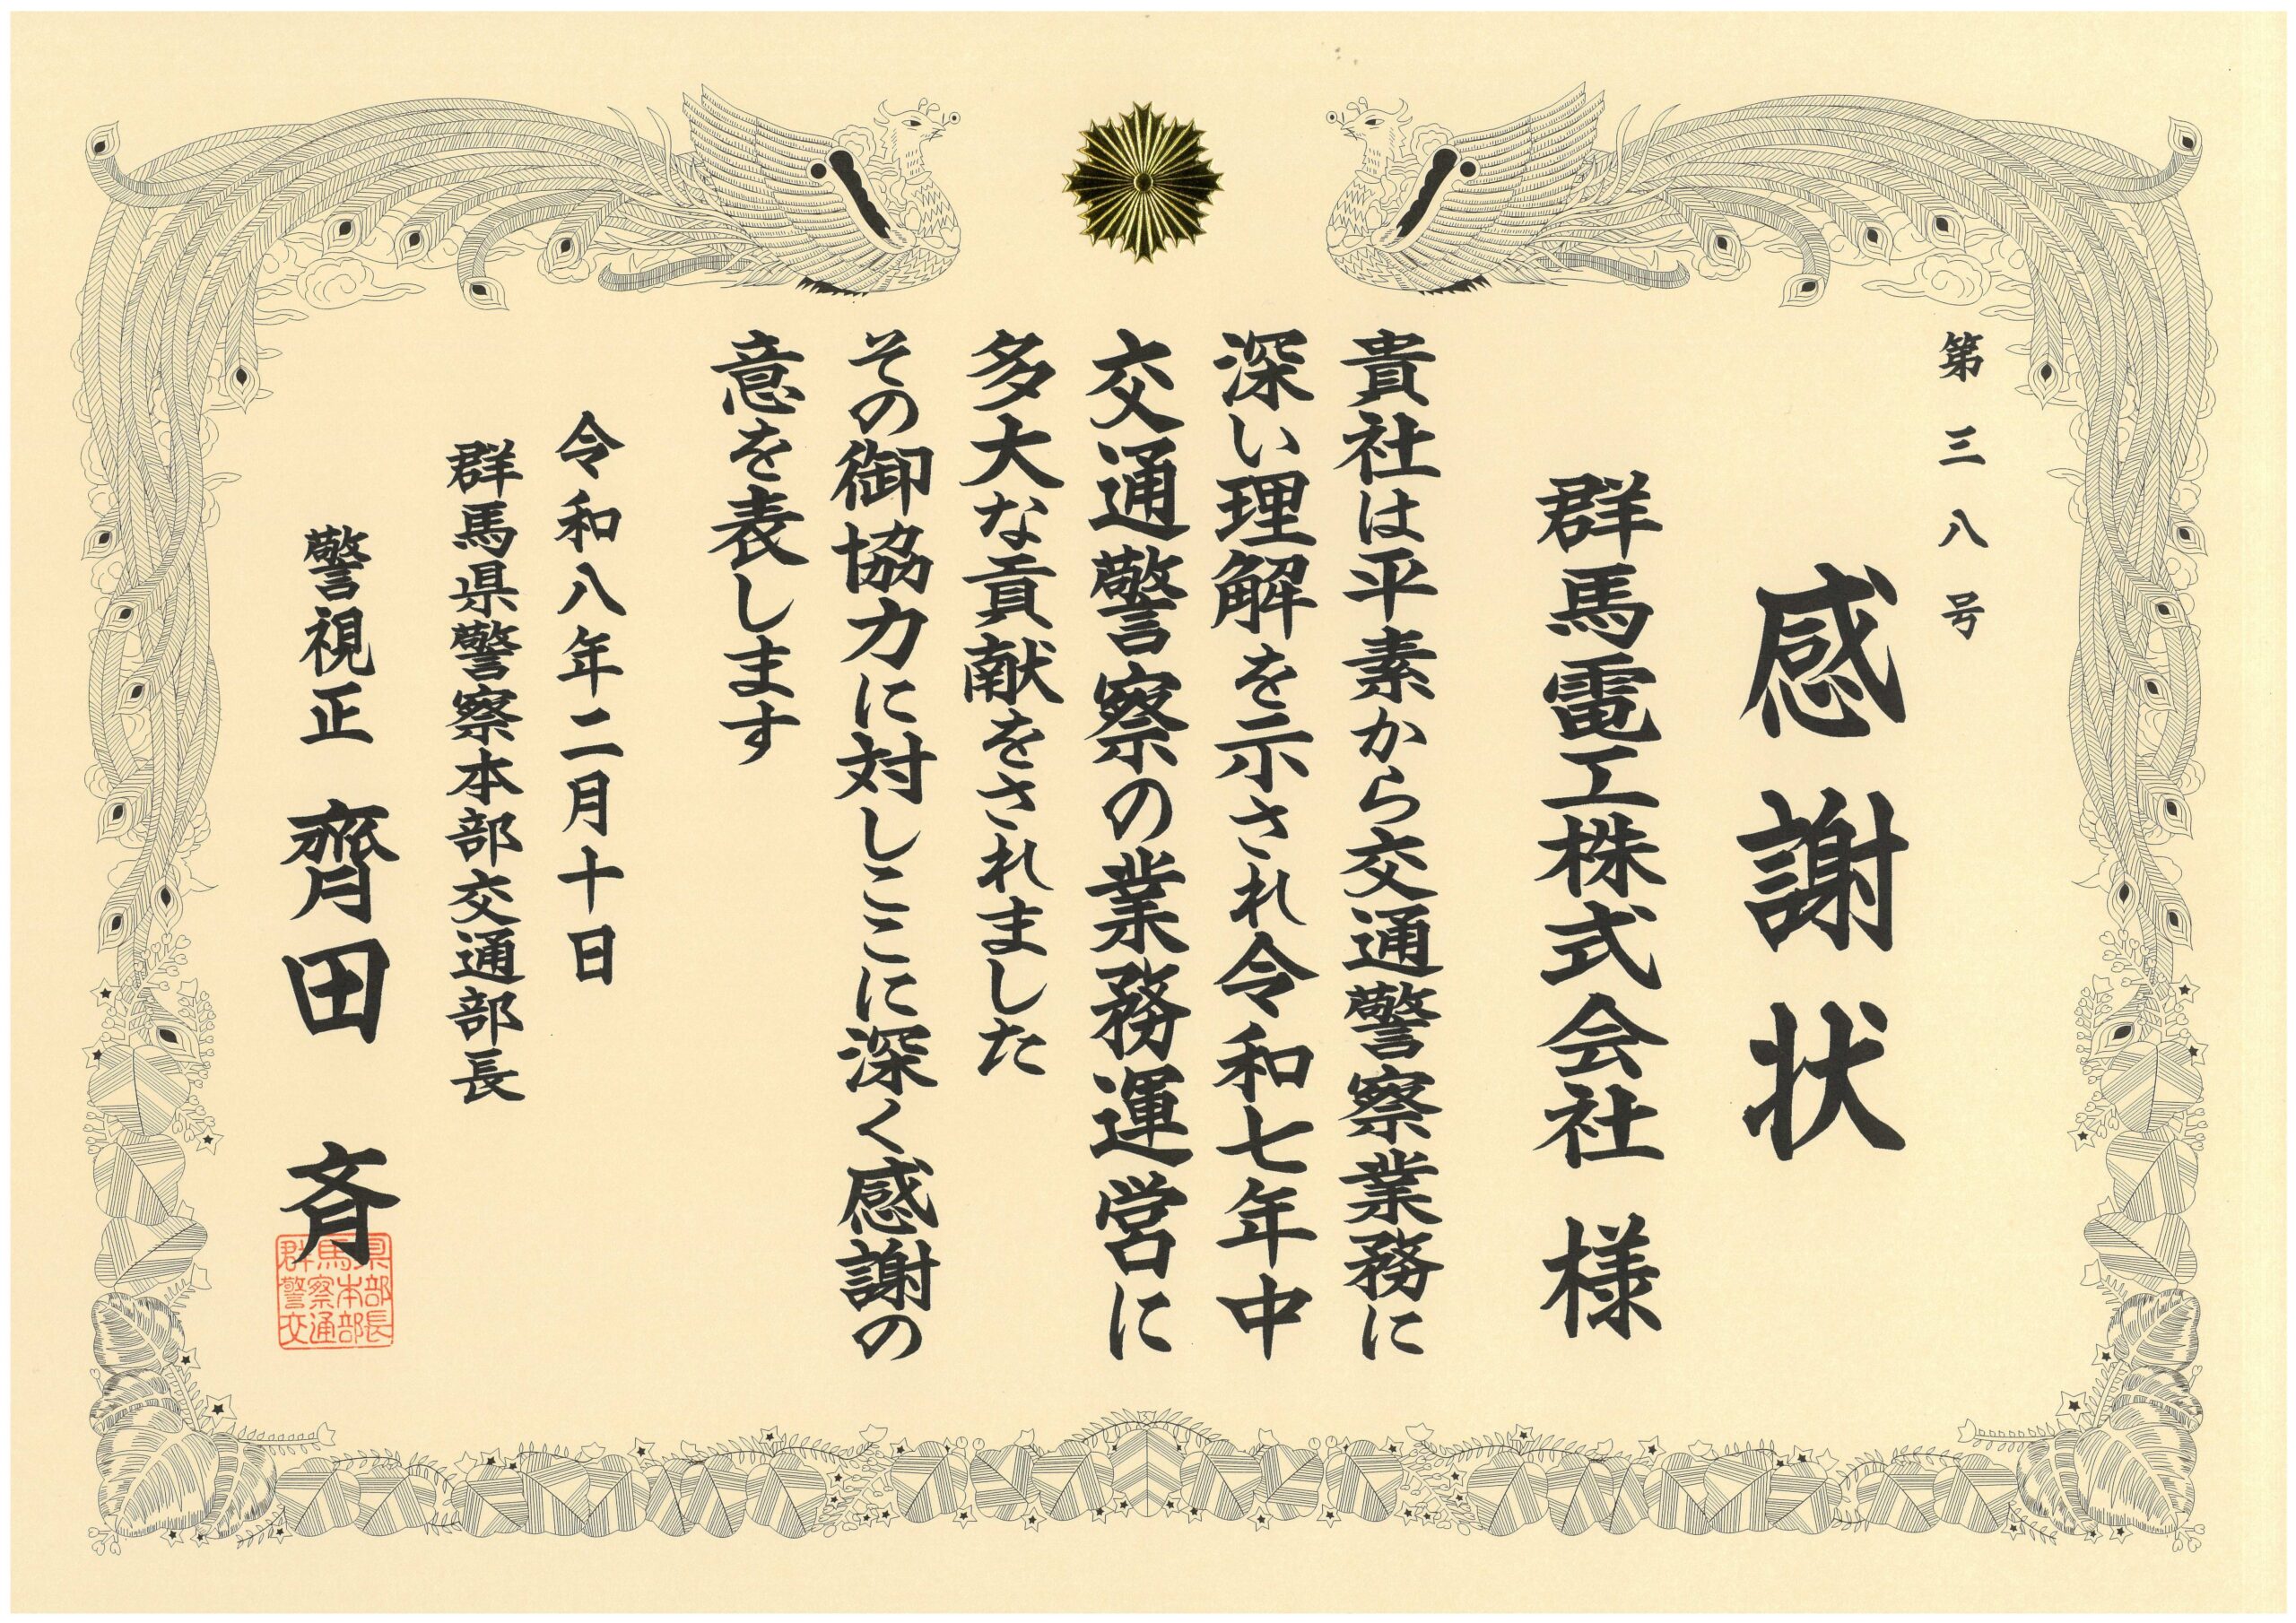 第三八号
感謝状
群馬電工株式会社 様
貴社は平素から交通警察業務に
深い理解を示され令和七年中
交通警察の業務運営に
多大な貢献をされました
その御協力に対しここに深く感謝の
意を表します
令和八年二月十日
群馬県警察本部交通部長
警視正 齊田 斉
群馬県
警察本部
交通部長